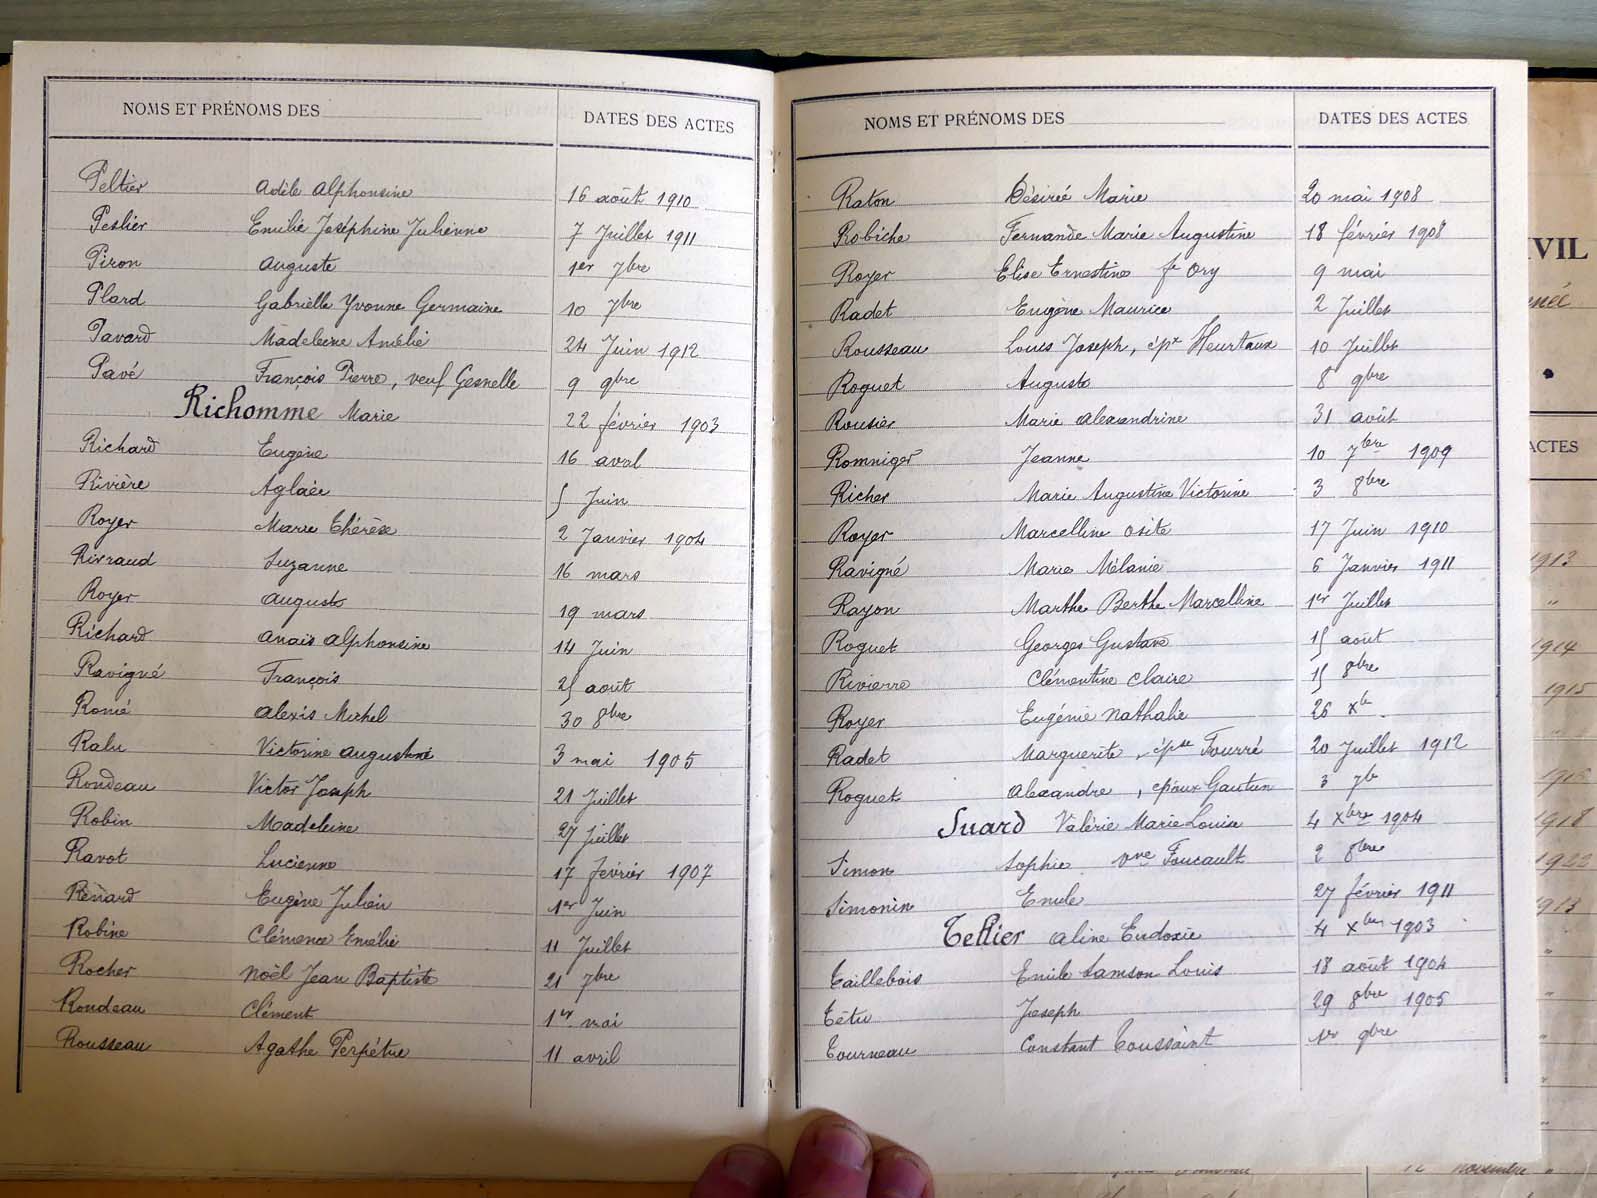 NOMS ET PRÉNOMS DES DATES DES ACTES
Peltier Adèle Alphonsine 16 août 1910
Peslier Emilie Joséphine Julienne 7 Juillet 1911
Piron Auguste 1er 7bre
Plard Gabrielle Yvonne Germaine 10 7bre
Pavard Madeleine Amélie 24 Juin 1912
Pavé François Pierre, veuf Gesnelle 9 9bre
Richomme Marie 22 février 1903
Richard Eugène 16 avril
Rivière Aglaée 5 Juin
Royer Marie Thérèse 2 Janvier 1904
Suzanne 16 mars
Royer Auguste 19 mars
Richard Anaïs Alphonsine 14 Juin
Ravigné François 25 août
Romé Alexis Michel 30 8bre
Ralu Victorine Augustine 3 mai 1905
Rondeau Victor Joseph 21 Juillet
Robin Madeleine 27 juillet
Ravot Lucienne 17 février 1907
Renard Eugène Julien 1er Juin
Robine Clémence Emélie 11 Juillet
Rocher Noël Jean Baptiste 21 7bre
Rondeau Clément 1er mai
Rousseau Agathe Perpétue 11 avril
NOMS ET PRÉNOMS DES DATES DES ACTES
Raton Désirée Marie 20 mai 1908
Robiche Fernande Marie Augustine 18 février 1908
Royer Elise Ernestine fe Ory 9 mai
Radet Eugène Maurice 2 Juillet
Rousseau Louis Joseph, épx Heurtaux 10 Juillet
Roguet Auguste 8 9bre
Rousier Marie Alexandrine 31 août
Romniger Jeanne 10 7bre 1909
Richer Marie Augustine Victorine 3 8bre
Royer Marcelline Osite 17 Juin 1910
Ravigné Marie Mélanie 6 Janvier 1911
Rayon Marthe Berthe Marcelline 1er Juillet
Roguet Georges Gustave 15 aout
Rivierre Clémentine Claire 15 8bre
Royer Eugénie Nathalie 26 Xbre
Radet Marguerite, épse Fourré 20 Juillet 1912
Roguet Alexandre, époux Gautun 3 7b
Suard Valérie Marie Louise 4 Xbre 1904
Simon Sophie vve Foucault 2 8bre
Simonin Emile 27 février 1911
Tellier Aline Eudoxie 4 Xbre 1903
Taillebois Emile Samson Louis 18 août 1904
Têtu Joseph 29 8bre 1905
Tourneau Constant Toussaint 1er 9bre
IVIL
ACTES
1913
1914
1915
1915
1918
1922
1913
12 novembre "